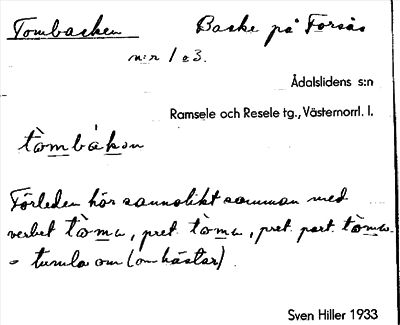 Tombacken Backe på Forsås
n:r 1 e3.
Ådalslidens s:n
Ramsele och Resele tg., Västernorrl. l.
tòmbákən
Förleden hör sannolikt samman med
verbet tòma, pret. tòma, pret. part. tòma.
= tumla om (om hästar).
Sven Hiller 1933